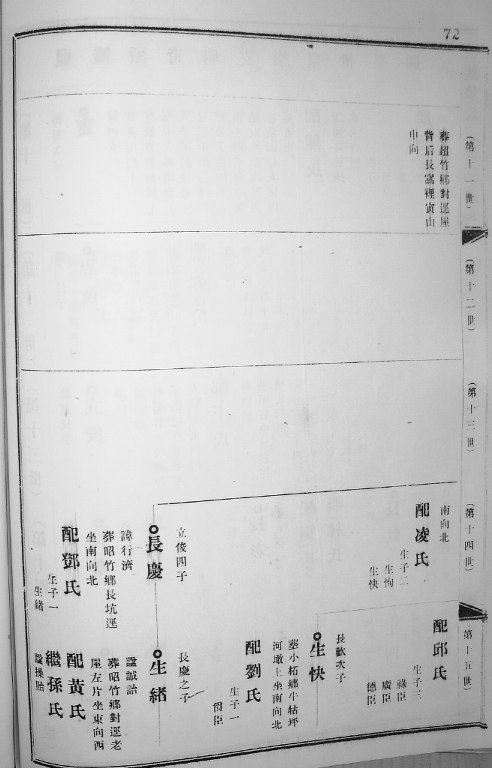 72
(第十一世)
葬超竹鄉對逕屋
背后長窩裡寅山
申向
(第十二世)
(第十三世)
(第十四世)
南向北
配凌氏
生子二
生恂
生快
立俊四子
長慶
諱行濟
葬昭竹鄉長坑逕
坐南向北
配鄧氏
生子一
生緒
(第十五世)
配邱氏
生子三
祿臣
廣臣
德臣
長歡次子
生快
塟小柘鄉牛牯坪
河墩上坐南向北
配劉氏
生子一
佰臣
長慶之子
生緒
諡誠詒
葬昭竹鄉對逕老
屋左片坐東向西
配黃氏
繼孫氏
諡操貽